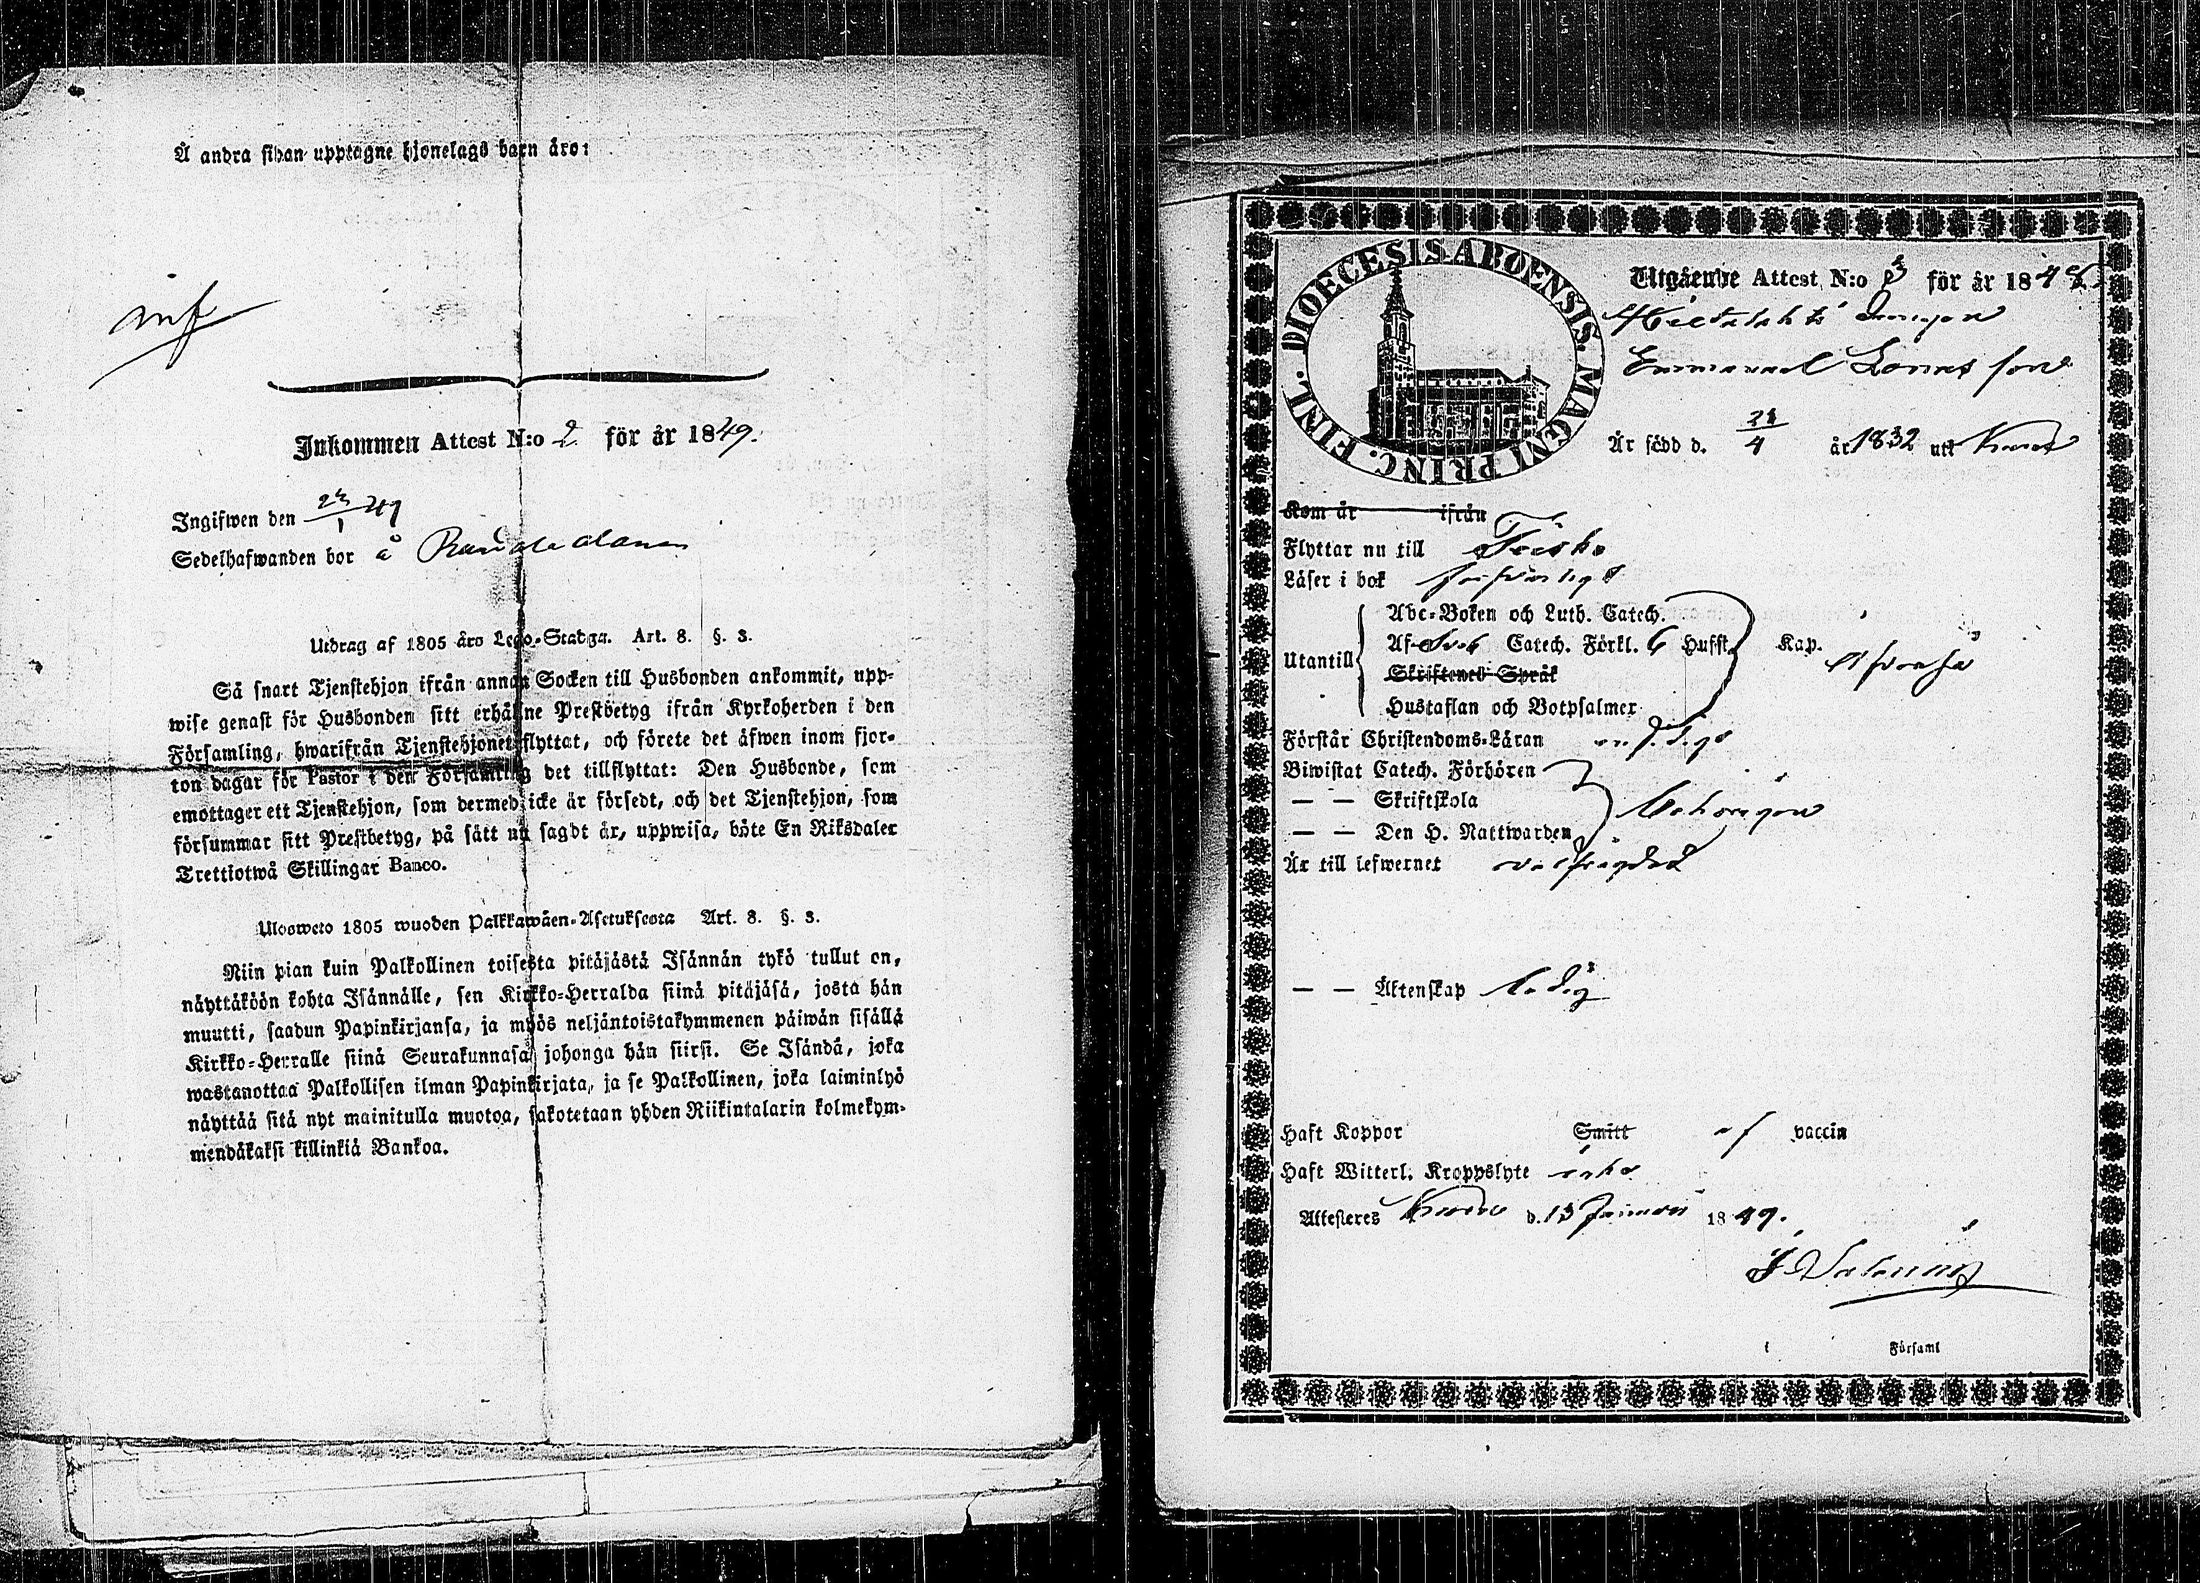 Å andra sidan upptagne hjonelags barn äro:
inf
Inkommen Attest N:o 2 för år 1849.
Ingifwen den 23/1 49
Sedelhafwanden bor å
Utdrag af 1805 års Lego-Stadga. Art. 8. §. 3.
Så snart Tjenstehjon ifrån annan Socken till Husbonden ankommit, upp-
wise genast för Husbonden sitt erhållne Prestbetyg ifrån Kyrkoherden i den
Församling, hwarifrån Tjenstehjonet flyttat, och förete det äfwen inom fjor-
ton dagar för Pastor i den Församling det tillflyttat: Den Husbonde, som
emottager ett Tjenstehjon, som dermed icke är försedt, och det Tjenstehjon, som
försummar sitt Prestbetyg, på sätt nu sagdt är, uppwisa, böte En Riksdaler
Trettiotwå Skillingar Banco.
Ulosweto 1805 wuoden Palkkawäen-Asetuksesta Art. 8. §. 3.
Niin pian kuin Palkollinen toisesta pitäjästä Isännän tykö tullut on,
näyttäköön kohta Isännälle, sen Kirkko-Herralda siinä pitäjäsä, josta hän
muutti, saadun Papinkirjansa, ja myös neljäntoistakymmenen päiwän sisällä
Kirkko-Herralle siinä Seurakunnasa johonga hän siirsi. Se Isändä, joka
wastanottaa Palkollisen ilman Papinkirjata, ja se Palkollinen, joka laiminlyö
näyttää sitä nyt mainitulla muotoa, sakotetaan yhden Riikintalarin kolmekym-
mendäkaksi killinkiä Bankoa.
DIOECESIS ABOENSIS. MAGNI PRINC. FINL.
Utgående Attest N:o 3 för år 184
Emmanuel son
Är född d. /4 år 1832 uti Kumo
Kom år ifrån
Flyttar nu till
Läser i bok försvarligt
Utantill
Abc-Boken och Luth. Catech.
Af Sveb Catech. Förkl. 6 Hufst. Kap.
Skriftenes Språk
Hustaflan och Botpsalmer
Förstår Christendoms-Läran
Biwistat Catech. Förhören
— — Skriftskola
— — Den H. Nattwarden behörigen
Är till lefwernet välfrägdad
— — Äktenskap ledig
Haft Koppor Smitt af vaccin
Haft Witterl. Kroppslyte icke
Attesteres Kumo d. 13 Januari 1849.
i Församl